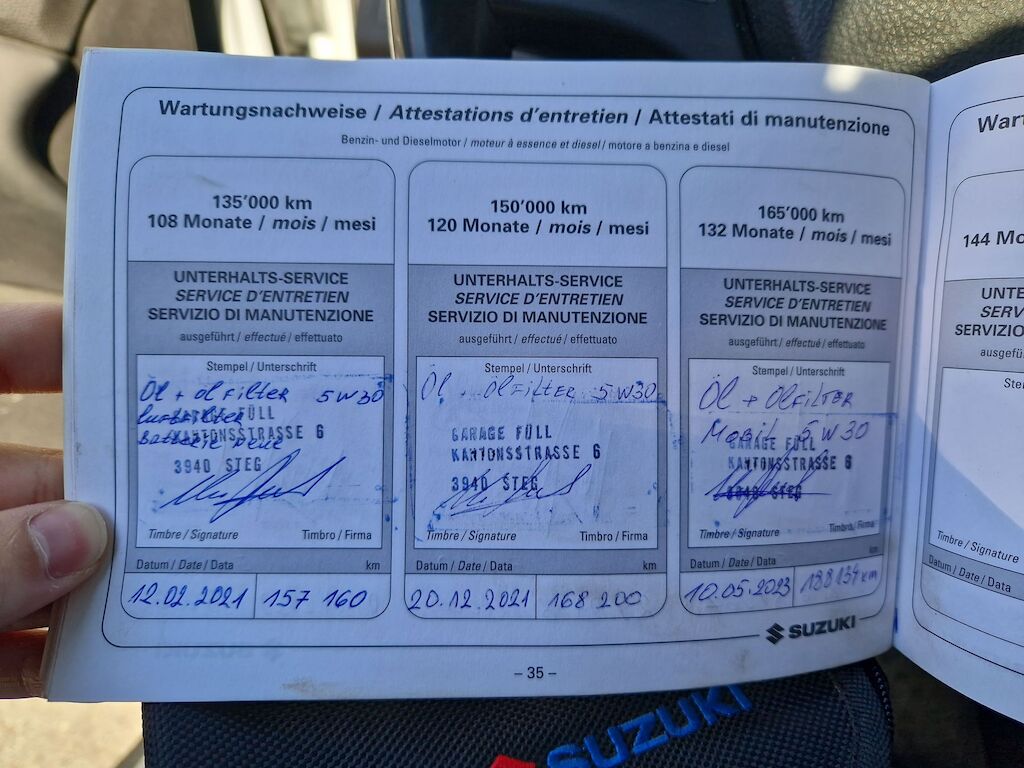 Wartungsnachweise / Attestations d'entretien / Attestati di manutenzione
Benzin- und Dieselmotor / moteur à essence et diesel / motore a benzina e diesel
135'000 km
108 Monate / mois / mesi
UNTERHALTS-SERVICE
SERVICE D'ENTRETIEN
SERVIZIO DI MANUTENZIONE
ausgeführt / effectué / effettuato
Stempel / Unterschrift
Öl + ölfilter 5W30
Luftfilter
Batterie neue
GARAGE FÜLL
KANTONSSTRASSE 6
3940 STEG
Timbre / Signature Timbro / Firma
Datum / Date / Data km
12.02.2021 157 160
150'000 km
120 Monate / mois / mesi
UNTERHALTS-SERVICE
SERVICE D'ENTRETIEN
SERVIZIO DI MANUTENZIONE
ausgeführt / effectué / effettuato
Stempel / Unterschrift
Öl + ölfilter 5W30
GARAGE FÜLL
KANTONSSTRASSE 6
3940 STEG
Timbre / Signature Timbro / Firma
Datum / Date / Data km
20.12.2021 168 200
165'000 km
132 Monate / mois / mesi
UNTERHALTS-SERVICE
SERVICE D'ENTRETIEN
SERVIZIO DI MANUTENZIONE
ausgeführt / effectué / effettuato
Stempel / Unterschrift
Öl + ölfilter
Mobil 5W30
GARAGE FÜLL
KANTONSSTRASSE 6
3940 STEG
Timbre / Signature Timbro / Firma
Datum / Date / Data km
10.05.2023 188134 km
SUZUKI
– 35 –
SUZUKI
144
Timbre / Signature
Datum / Date / Data